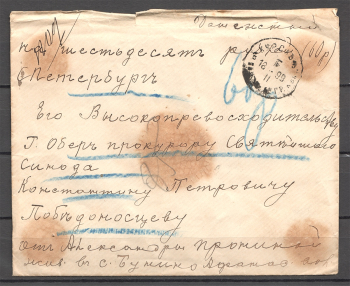 Денежный
на шестьдесят руб. (60р)
С Петербург
Его Высокопревосходительству
Г. Оберъ прокурору Святѣйшаго
Синода
Константину Петровичу
Побѣдоносцеву
отъ Александры Прониной
жив. въ с. Бунино